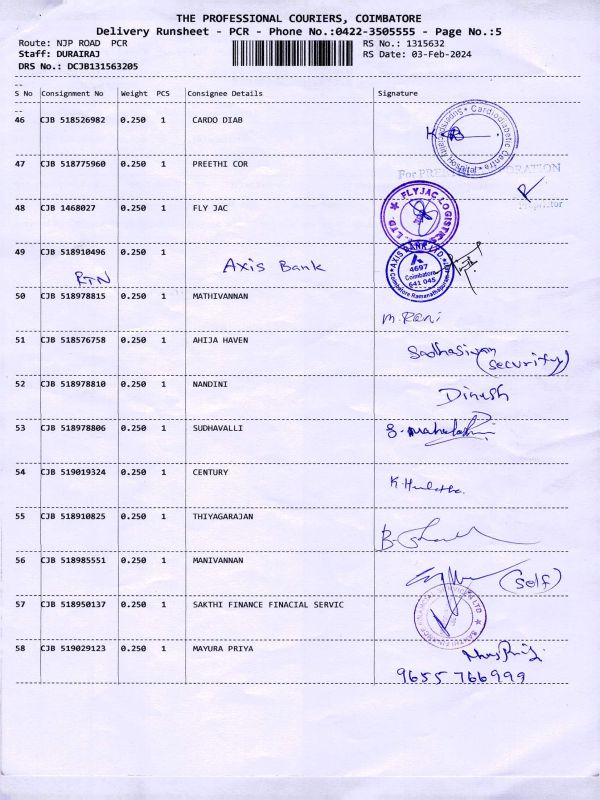 THE PROFESSIONAL COURIERS, COIMBATORE
Delivery Runsheet - PCR - Phone No.:0422-3505555 - Page No.:5
Route: NJP ROAD PCR RS No.: 1315632
Staff: DURAIRAJ RS Date: 03-Feb-2024
DRS No.: DCJB131563205
S No Consignment No Weight PCS Consignee Details Signature
46 CJB 518526982 0.250 1 CARDO DIAB
Cardiodiabetic Centre
Hospital
47 CJB 518775960 0.250 1 PREETHI COR
For
48 CJB 1468027 0.250 1 FLY JAC
FLYJAC LOGISTICS LTD.
49 CJB 518910496 0.250 1
RTN Axis Bank
AXIS BANK LTD
4697
Coimbatore
641 045
Coimbatore Ramanathapuram
50 CJB 518978815 0.250 1 MATHIVANNAN
M. Rani
51 CJB 518576758 0.250 1 AHIJA HAVEN
Sadhasivam
(Security)
52 CJB 518978810 0.250 1 NANDINI
Dinesh
53 CJB 518978806 0.250 1 SUDHAVALLI
54 CJB 519019324 0.250 1 CENTURY
55 CJB 518910825 0.250 1 THIYAGARAJAN
56 CJB 518985551 0.250 1 MANIVANNAN
(Self)
57 CJB 518950137 0.250 1 SAKTHI FINANCE FINACIAL SERVIC
58 CJB 519029123 0.250 1 MAYURA PRIYA
9655766999